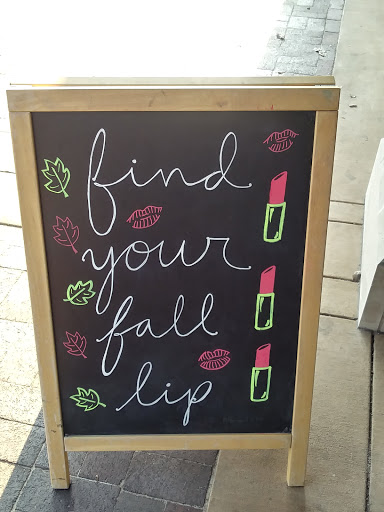 find
your
fall
lip